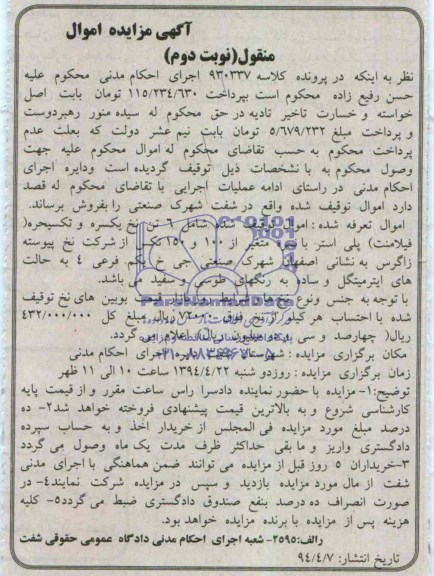 آگهی مزایده اموال
منقول(نوبت دوم)
نظر به اینکه در پرونده کلاسه ۹۳۰۳۳۷ اجرای احکام مدنی محکوم علیه
حسن رفیع زاده محکوم است بپرداخت ۱۱۵/۲۳۴/۶۳۰ تومان بابت اصل
خواسته و خسارت تاخیر تادیه در حق محکوم له سیده منور رهبردوست
و پرداخت مبلغ ۵/۶۷۹/۲۳۲ تومان بابت نیم عشر دولت که بعلت عدم
پرداخت محکوم به حسب تقاضای محکوم له اموال محکوم علیه جهت
وصول محکوم به با نشخصات ذیل توقیف گردیده است ودایره اجرای
احکام مدنی در راستای ادامه عملیات اجرایی با تقاضای محکوم له قصد
دارد اموال توقیف شده واقع در شفت شهرک صنعتی را بفروش برساند.
اموال تعرفه شده : اموال توقیف شده شامل ۶ تن نخ یکسره و تکسیحره(
فیلامنت) پلی استر با متغیر از ۱۰۰ و ۱۵۰ از شرکت نخ پیوسته
زاگرس به نشانی اصفهان شهرک صنعتی جی خ یکم فرعی ۴ به حالت
های اینترمینگل و ساده به رنگهای طوسی و سفید می باشد.
با توجه به جنس ونوع نخ های شرایط روز بازار قیمت بوبین های نخ توقیف
شده با احتساب هر کیلو از نخ فوق ۷۲۰۰۰ ریال مبلغ کل ۴۳۲/۰۰۰/۰۰۰
ریال( چهارصد و سی و دو میلیون ریال) اعلام می گردد.
مکان برگزاری مزایده : شهرستان شفت دایره اجرای احکام مدنی
زمان برگزاری مزایده : روزدو شنبه ۱۳۹۴/۴/۲۲ ساعت ۱۰ الی ۱۱ ظهر
توضیح:۱- مزایده با حضور نماینده دادسرا راس ساعت مقرر و از قیمت پایه
کارشناسی شروع و به بالاترین قیمت پیشنهادی فروخته خواهد شد۲- ده
درصد مبلغ مورد مزایده فی المجلس از خریدار اخذ و به حساب سپرده
دادگستری واریز و ما بقی حداکثر ظرف مدت یک ماه وصول می گردد
۳-خریداران ۵ روز قبل از مزایده می توانند ضمن هماهنگی با اجرای مدنی
شفت از مال مورد مزایده بازدید و سپس در مزایده شرکت نمایند۴- در
صورت انصراف ده درصد بنفع صندوق دادگستری ضبط می گردد۵- کلیه
هزینه پس از مزایده با برنده مزایده خواهد بود.
رالف:۲۵۹۵- شعبه اجرای احکام مدنی دادگاه عمومی حقوقی شفت
تاریخ انتشار: ۹۴/۴/۷